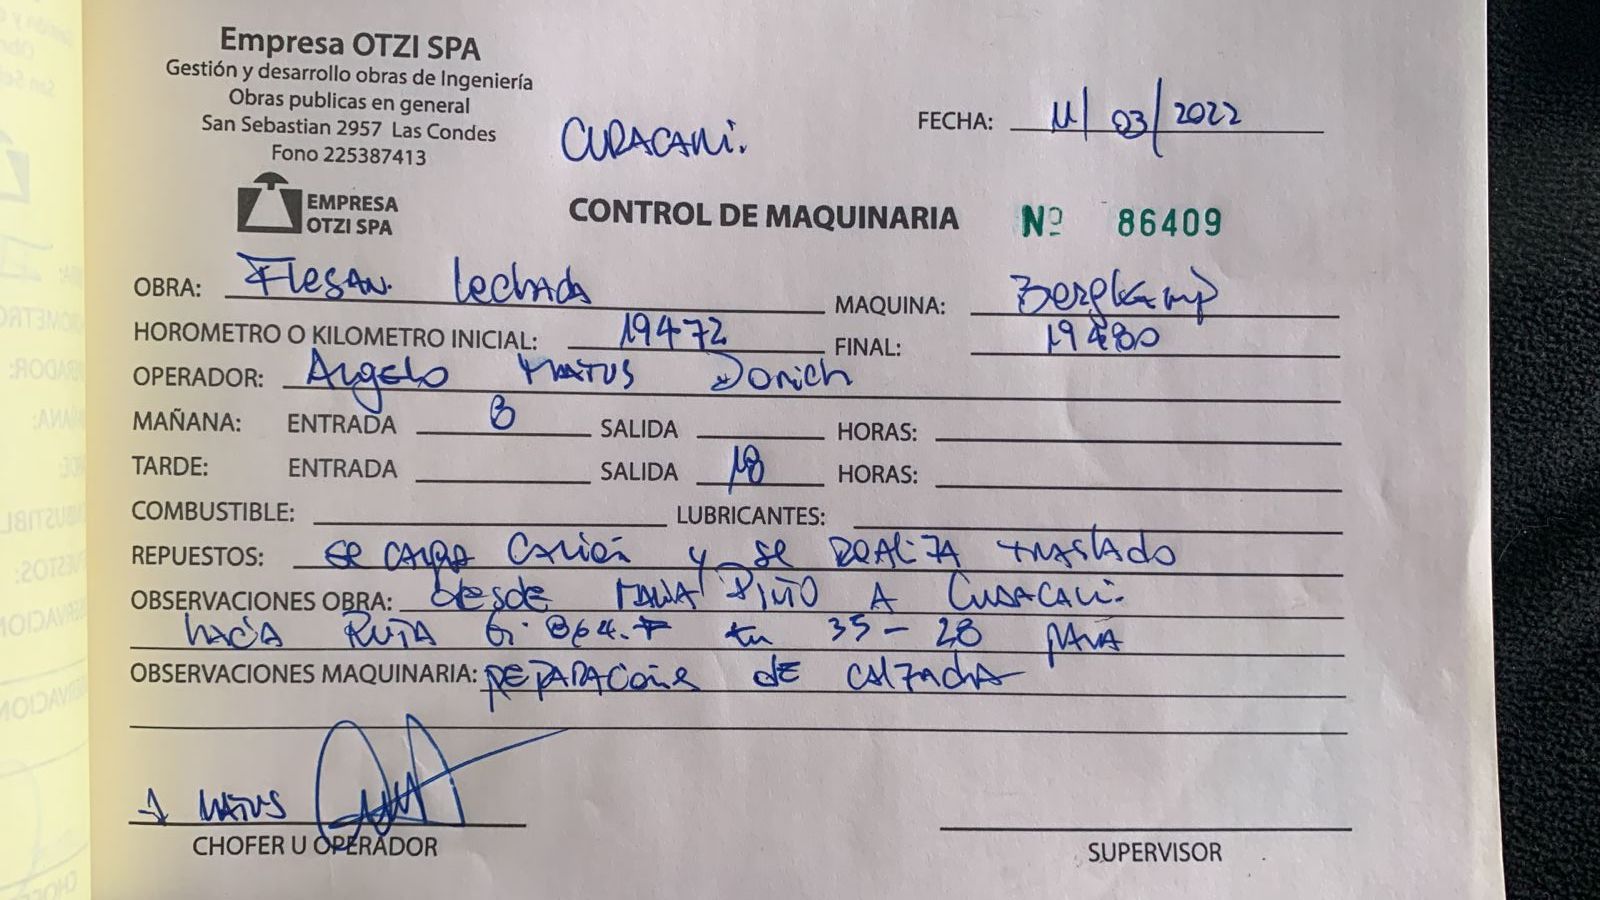 Empresa OTZI SPA
Gestión y desarrollo obras de Ingeniería
Obras publicas en general
San Sebastian 2957 Las Condes
Fono 225387413
CURACAVI.
FECHA: 11/03/2022
EMPRESA
OTZI SPA
CONTROL DE MAQUINARIA Nº 86409
OBRA: Flesan. Lechada MAQUINA: Bergkamp
HOROMETRO O KILOMETRO INICIAL: 19472 FINAL: 19480
OPERADOR: Angelo Matus Donich
MAÑANA: ENTRADA 8 SALIDA HORAS:
TARDE: ENTRADA SALIDA 18 HORAS:
COMBUSTIBLE: LUBRICANTES:
REPUESTOS: se carga camión y se realiza traslado
OBSERVACIONES OBRA: desde Maria Pinto A Curacavi.
hacia Ruta G. 864. 35-28 para
OBSERVACIONES MAQUINARIA: reparacione de calzada
MATUS
CHOFER U OPERADOR
SUPERVISOR